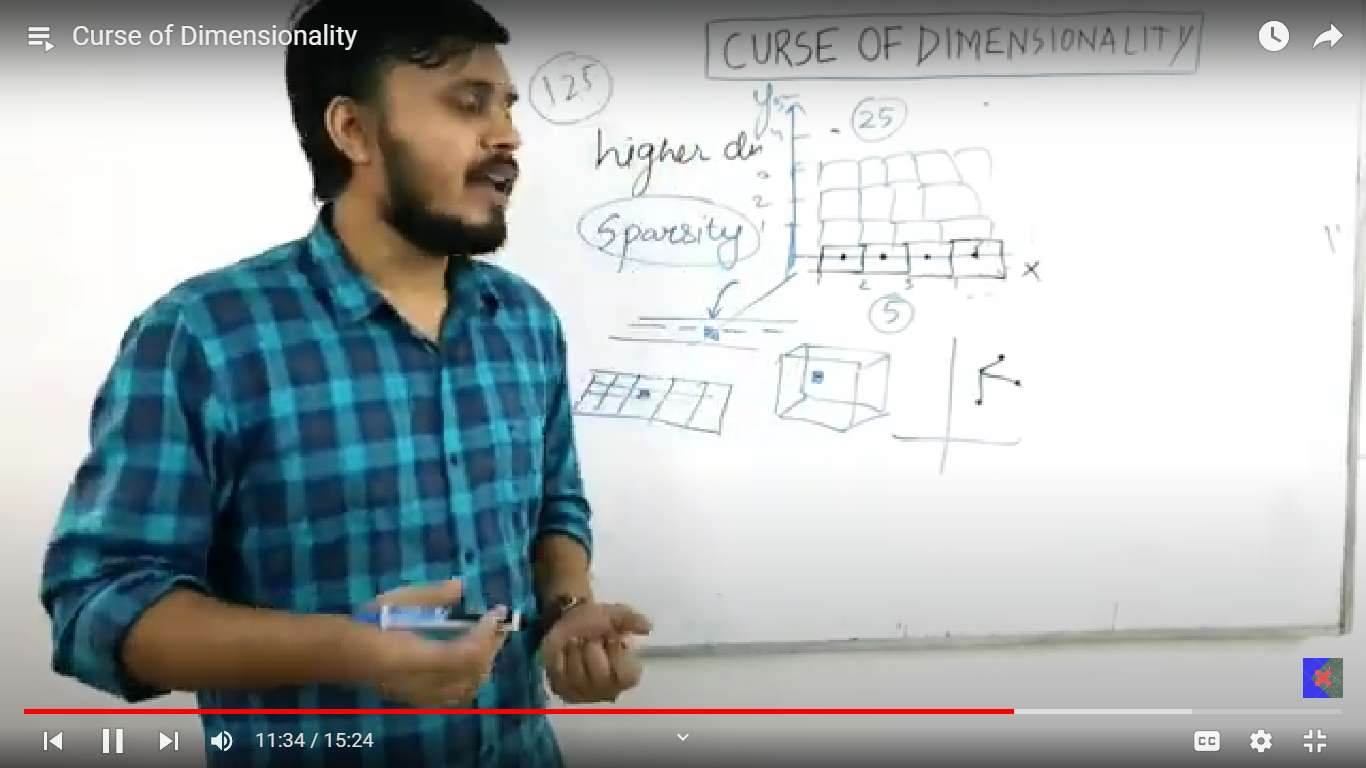 Curse of Dimensionality
CURSE OF DIMENSIONALITY
125
y
5
25
higher dim
4
3
2
Sparsity
1
x
2 3
5
11:34 / 15:24
CC